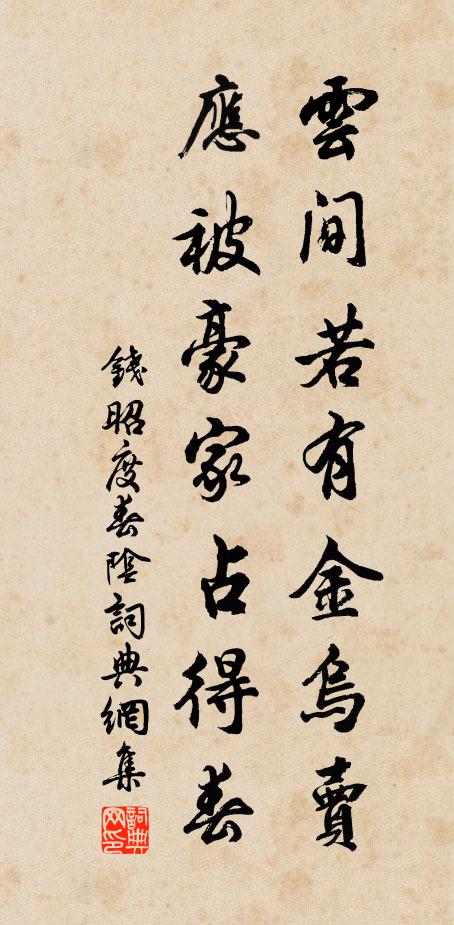 雲間若有金烏賣
應被豪家占得春
錢昭度春陰詞典網集
詞典網印